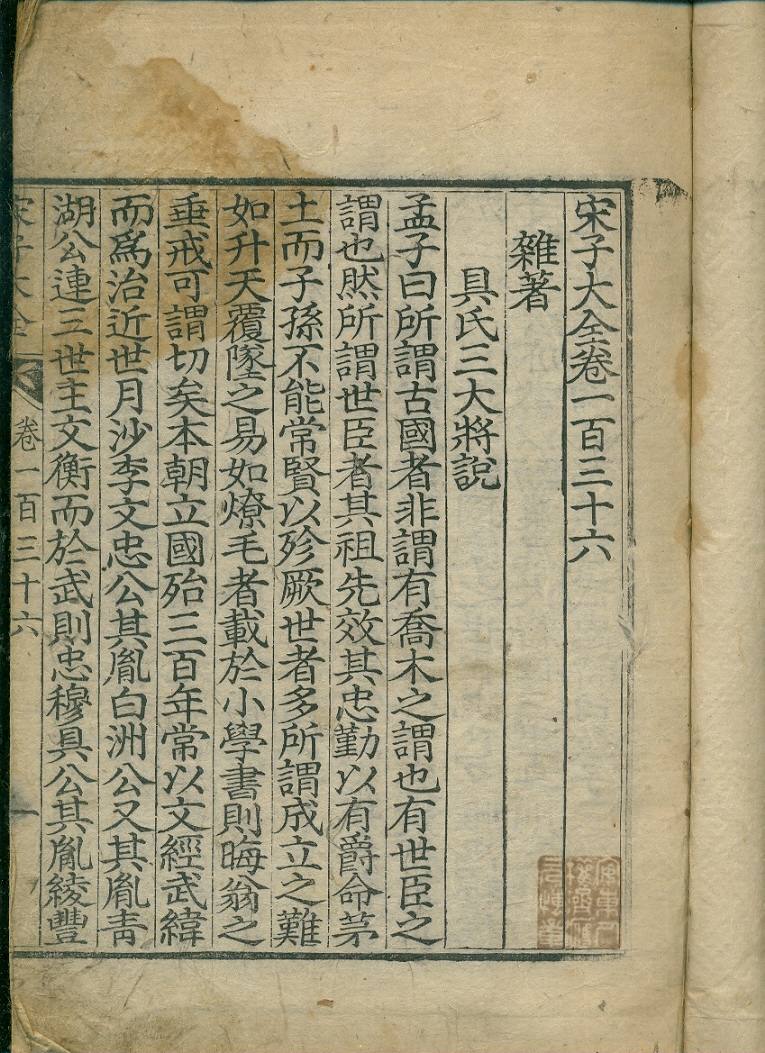 宋子大全卷一百三十六
雜著
具氏三大將說
孟子曰所謂古國者非謂有喬木之謂也有世臣之
謂也然所謂世臣者其祖先效其忠勤以有爵命茅
土而子孫不能常賢以殄厥世者多所謂成立之難
如升天覆墜之易如燎毛者載於小學書則晦翁之
垂戒可謂切矣本朝立國殆三百年常以文經武緯
而爲治近世月沙李文忠公其胤白洲公又其胤靑
湖公連三世主文衡而於武則忠穆具公其胤綾豐
宋子大全 卷一百三十六 一